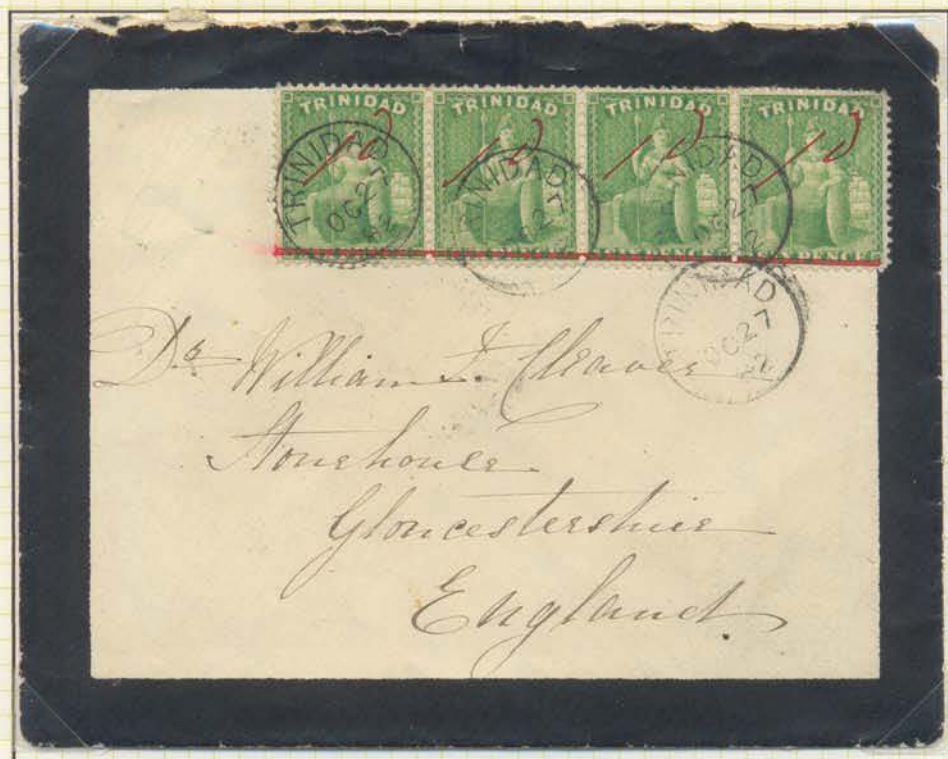 TRINIDAD TRINIDAD TRINIDAD TRINIDAD
1d 1d 1d 1d
TRINIDAD OC 27 82
TRINIDAD
TRINIDAD
PENCE
TRINIDAD OC 27 82
Dr. William F. Cleaver
Stonehouse
Gloucestershire
England.